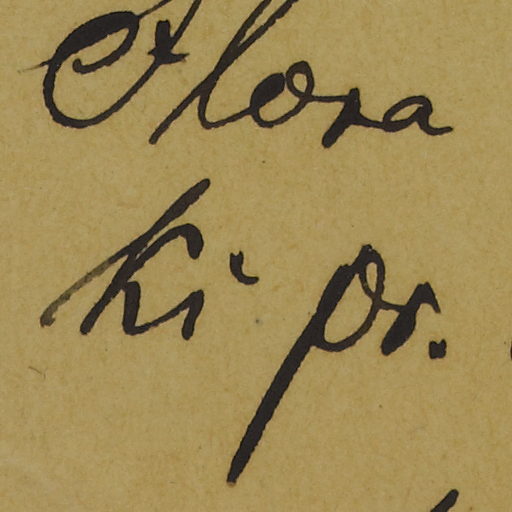 Flora
Ki pr.